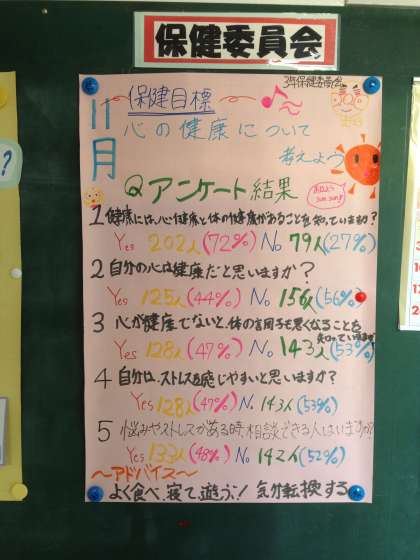 保健委員会
3年保健委員会
11月
保健目標
心の健康について
考えよう
Qアンケート結果
1 健康には、心の健康と体の健康があることを知っていますか?
Yes 202人(72%) No 79人(27%)
2 自分の心は健康だと思いますか?
Yes 125人(44%) No 156人(56%)
3 心が健康でないと、体の調子も悪くなることを
知っていますか?
Yes 128人(47%) No 143人(53%)
4 自分は、ストレスを感じやすいと思いますか?
Yes 128人(47%) No 143人(53%)
5 悩みやストレスがある時、相談できる人はいますか?
Yes 133人(48%) No 142人(52%)
～アドバイス～
よく食べ、寝て、遊ぶ!! 気分転換する
?